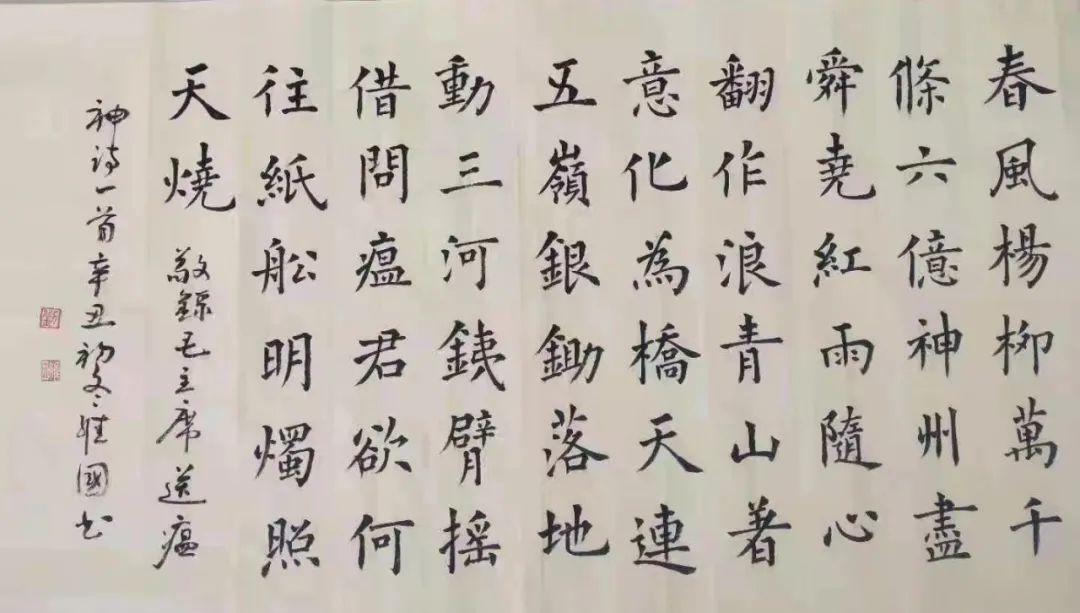 春風楊柳萬千
條六億神州盡
舜堯紅雨隨心
翻作浪青山著
意化為橋天連
五嶺銀鋤落地
動三河銕臂摇
借問瘟君欲何
往紙舩明燭照
天燒 敬録毛主席送瘟
神诗一首辛丑初冬維國书